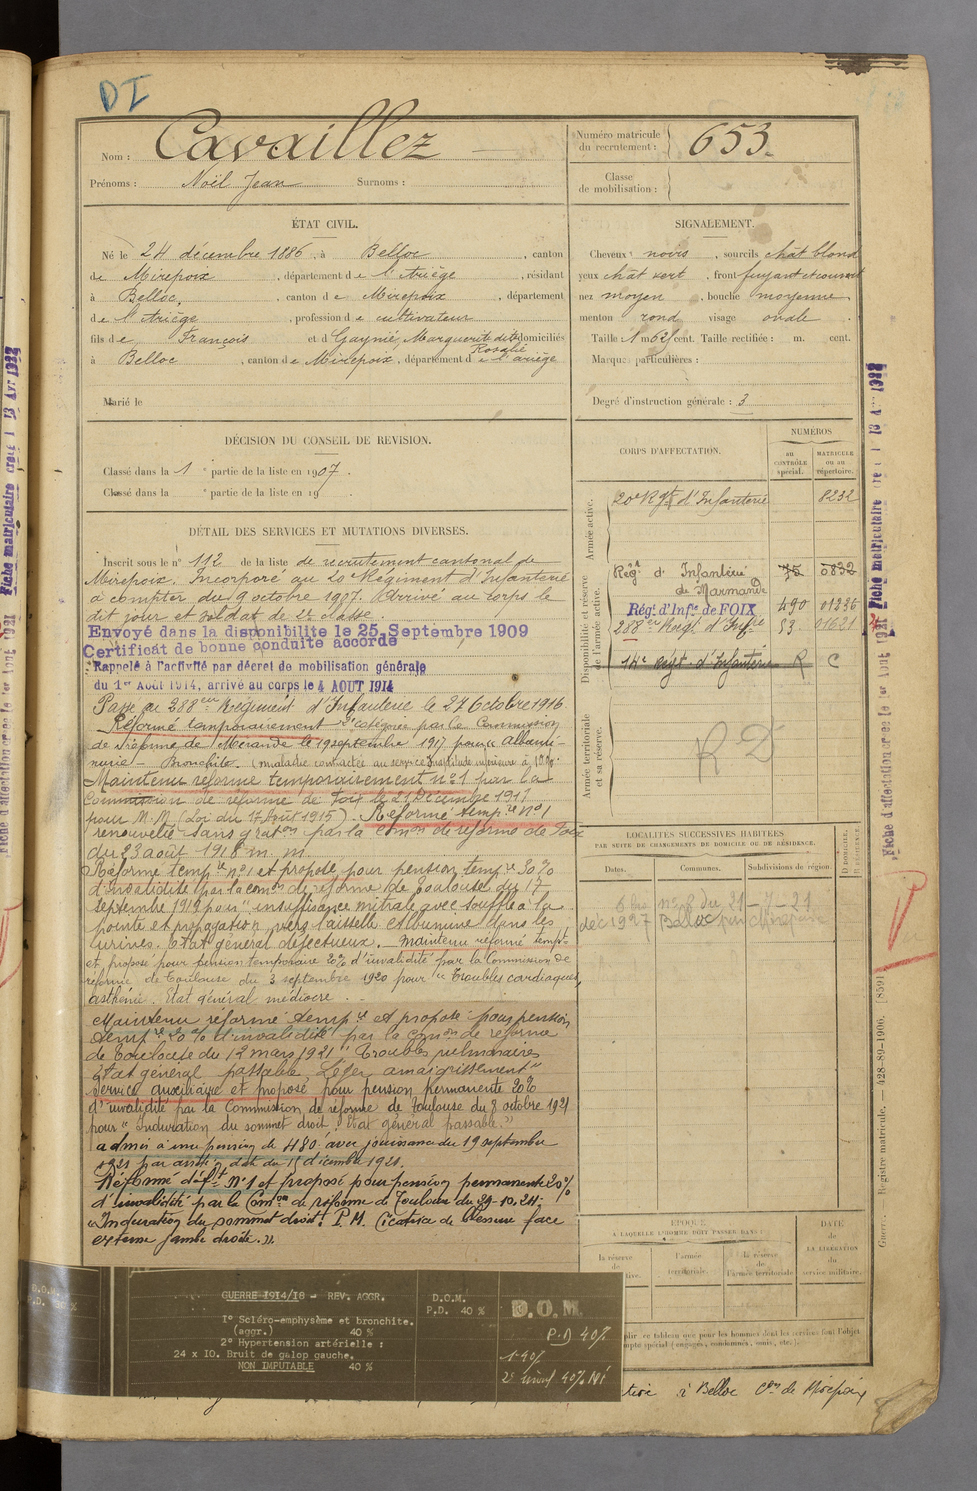 DI
Nom : Cavaillez
Prénoms : Noël Jean Surnoms :
Numéro matricule
du recrutement : 653.
Classe
de mobilisation :
ÉTAT CIVIL.
Né le 24 décembre 1886, à Belloc, canton
de Mirepoix, département de l'Ariège, résidant
à Belloc, canton de Mirepoix, département
de l'Ariège, profession de cultivateur
fils de François et de Gaynié, Marguerite dite domiciliés
Rosalie
à Belloc, canton de Mirepoix, département de l'ariège
Marié le
SIGNALEMENT.
Cheveux noirs, sourcils chât blond
yeux chât vert, front fuyant et couvert
nez moyen, bouche moyenne
menton rond visage ovale
Taille 1 m 62 cent. Taille rectifiée : m. cent.
Marques particulières :
Degré d'instruction générale : 3
DÉCISION DU CONSEIL DE REVISION.
Classé dans la 1e partie de la liste en 1907.
Classé dans la e partie de la liste en 19
DÉTAIL DES SERVICES ET MUTATIONS DIVERSES.
Inscrit sous le n° 112 de la liste de recrutement cantonal de
Mirepoix. Incorporé au 20e Régiment d'Infanterie
à compter du 9 octobre 1907. Arrivé au corps le
dit jour et soldat de 2e classe.
Envoyé dans la disponibilité le 25 Septembre 1909
Certificat de bonne conduite accordé
Rappelé à l'activité par décret de mobilisation générale
du 1er Août 1914, arrivé au corps le 4 AOUT 1914
Passé au 288eme Régiment d'Infanterie le 27 Octobre 1916
Réformé temporairement 1e catégorie par la Commission
de réforme de Mirande le 19 septembre 1917 pour « Albumi-
nurie - Bronchite. (maladie contractée au service
Maintenu réformé temporairement n°1 par la
Commission de réforme de Foix le 21 Décembre 1917
pour M. M. (Loi du 17 Août 1915). Réformé temp.re n°1
renouvelé sans graton par la comon de réforme de Foix
du 23 août 1918 m. m.
Réformé temp.re n°1 et proposé pour pension temp.re 30%
d'invalidité par la comon de réforme de Toulouse du 17
septembre 1919 pour "insuffisance mitrale avec souffle à la
pointe et propagation vers l'aisselle Albumine dans les
urines. Etat général défectueux. Maintenu réformé tempre
et proposé pour pension temporaire 20% d'invalidité par la Commission de
réforme de Toulouse du 3 septembre 1920 pour "Troubles cardiaques,
asthénie. Etat général médiocre.
Maintenu réformé temp.re et proposé pour pension
temp.re 20% d'invalidité par la Comon de réforme
de Toulouse du 12 mars 1921 "Troubles pulmonaires
Etat général passable. Léger amaigrissement"
Service auxiliaire et proposé pour pension Permanente 20%
d'invalidité par la Commission de réforme de Toulouse du 8 octobre 1921
pour "Induration du sommet droit. Etat général passable."
admis à une pension de 480f avec jouissance du 19 septembre
1921 par arrêté en date du 15 décembre 1921.
Réformé déf.t N°1 et proposé pour pension permanente 20%
d'invalidité par la Comon de réforme de Toulouse du 29-10-24.
"Induration du sommet droit. P.M. Cicatrice de blessure face
externe jambe droite."
CORPS D'AFFECTATION.
NUMÉROS
au
CONTRÔLE
spécial.
MATRICULE
ou au
répertoire.
Armée active.
20e Rgt d'Infanterie 8232
Disponibilité et réserve
de l'armée active.
Régt d'Infanterie 75 0832
de Marmande
Régt d'Infie de FOIX 490 01236
288eme Regt d'Infie 53 01621
14e Regt d'Infanterie R C
Armée territoriale
et sa réserve.
RD
LOCALITÉS SUCCESSIVES HABITÉES
PAR SUITE DE CHANGEMENTS DE DOMICILE OU DE RÉSIDENCE.
Dates. Communes. Subdivisions de région. D DOMICILE. R RÉSIDENCE.
du 21-7-21
déc 1927 Belloc par Mirepoix
ÉPOQUE
À LAQUELLE L'HOMME DOIT PASSER DANS
DATE
de
LA LIBÉRATION
du
service militaire.
la réserve
de
l'armée
territoriale.
la réserve
de
l'armée territoriale
Guerre. — Registre matricule. — 428-89-1906. [8591]
D.O.M.
P.D. 40 %
GUERRE 1914/18 - REV. AGGR.
1° Scléro-emphysème et bronchite.
(aggr.) 40 %
2° Hypertension artérielle :
24 x 10. Bruit de galop gauche.
NON IMPUTABLE 40 %
D.O.M.
P.D. 40 %
D.O.M.
P.D 40%
1° 40%
2° 40% NI
plir ce tableau que pour les hommes dont les services font l'objet
mpte spécial (engagés, condamnés, omis, etc.).
à Belloc Con de Mirepoix